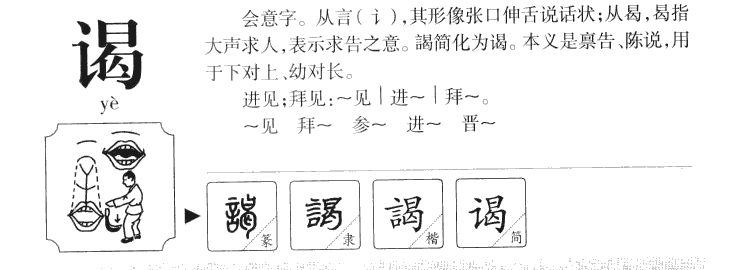 谒
yè
会意字。从言(讠),其形像张口伸舌说话状;从曷,曷指
大声求人,表示求告之意。謁简化为谒。本义是禀告、陈说,用
于下对上、幼对长。
进见;拜见:～见｜进～｜拜～。
～见 拜～ 参～ 进～ 晋～
謁 篆
謁 隶
謁 楷
谒 简